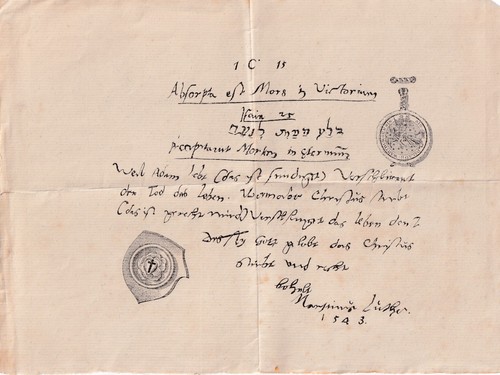 1 C 15
Absorpta est Mors in Victoriam
25
בלע המות לנצח
Mortem in
Weil Adam lebt (das ist sundiget) Verschlinget
den Tod das leben. aber Christus stirbt
(das ist gerecht wird) Verschlinget das leben den T
Gott gelobt das Christus
stirbt und recht
behelt
Martinus Luther
1543.